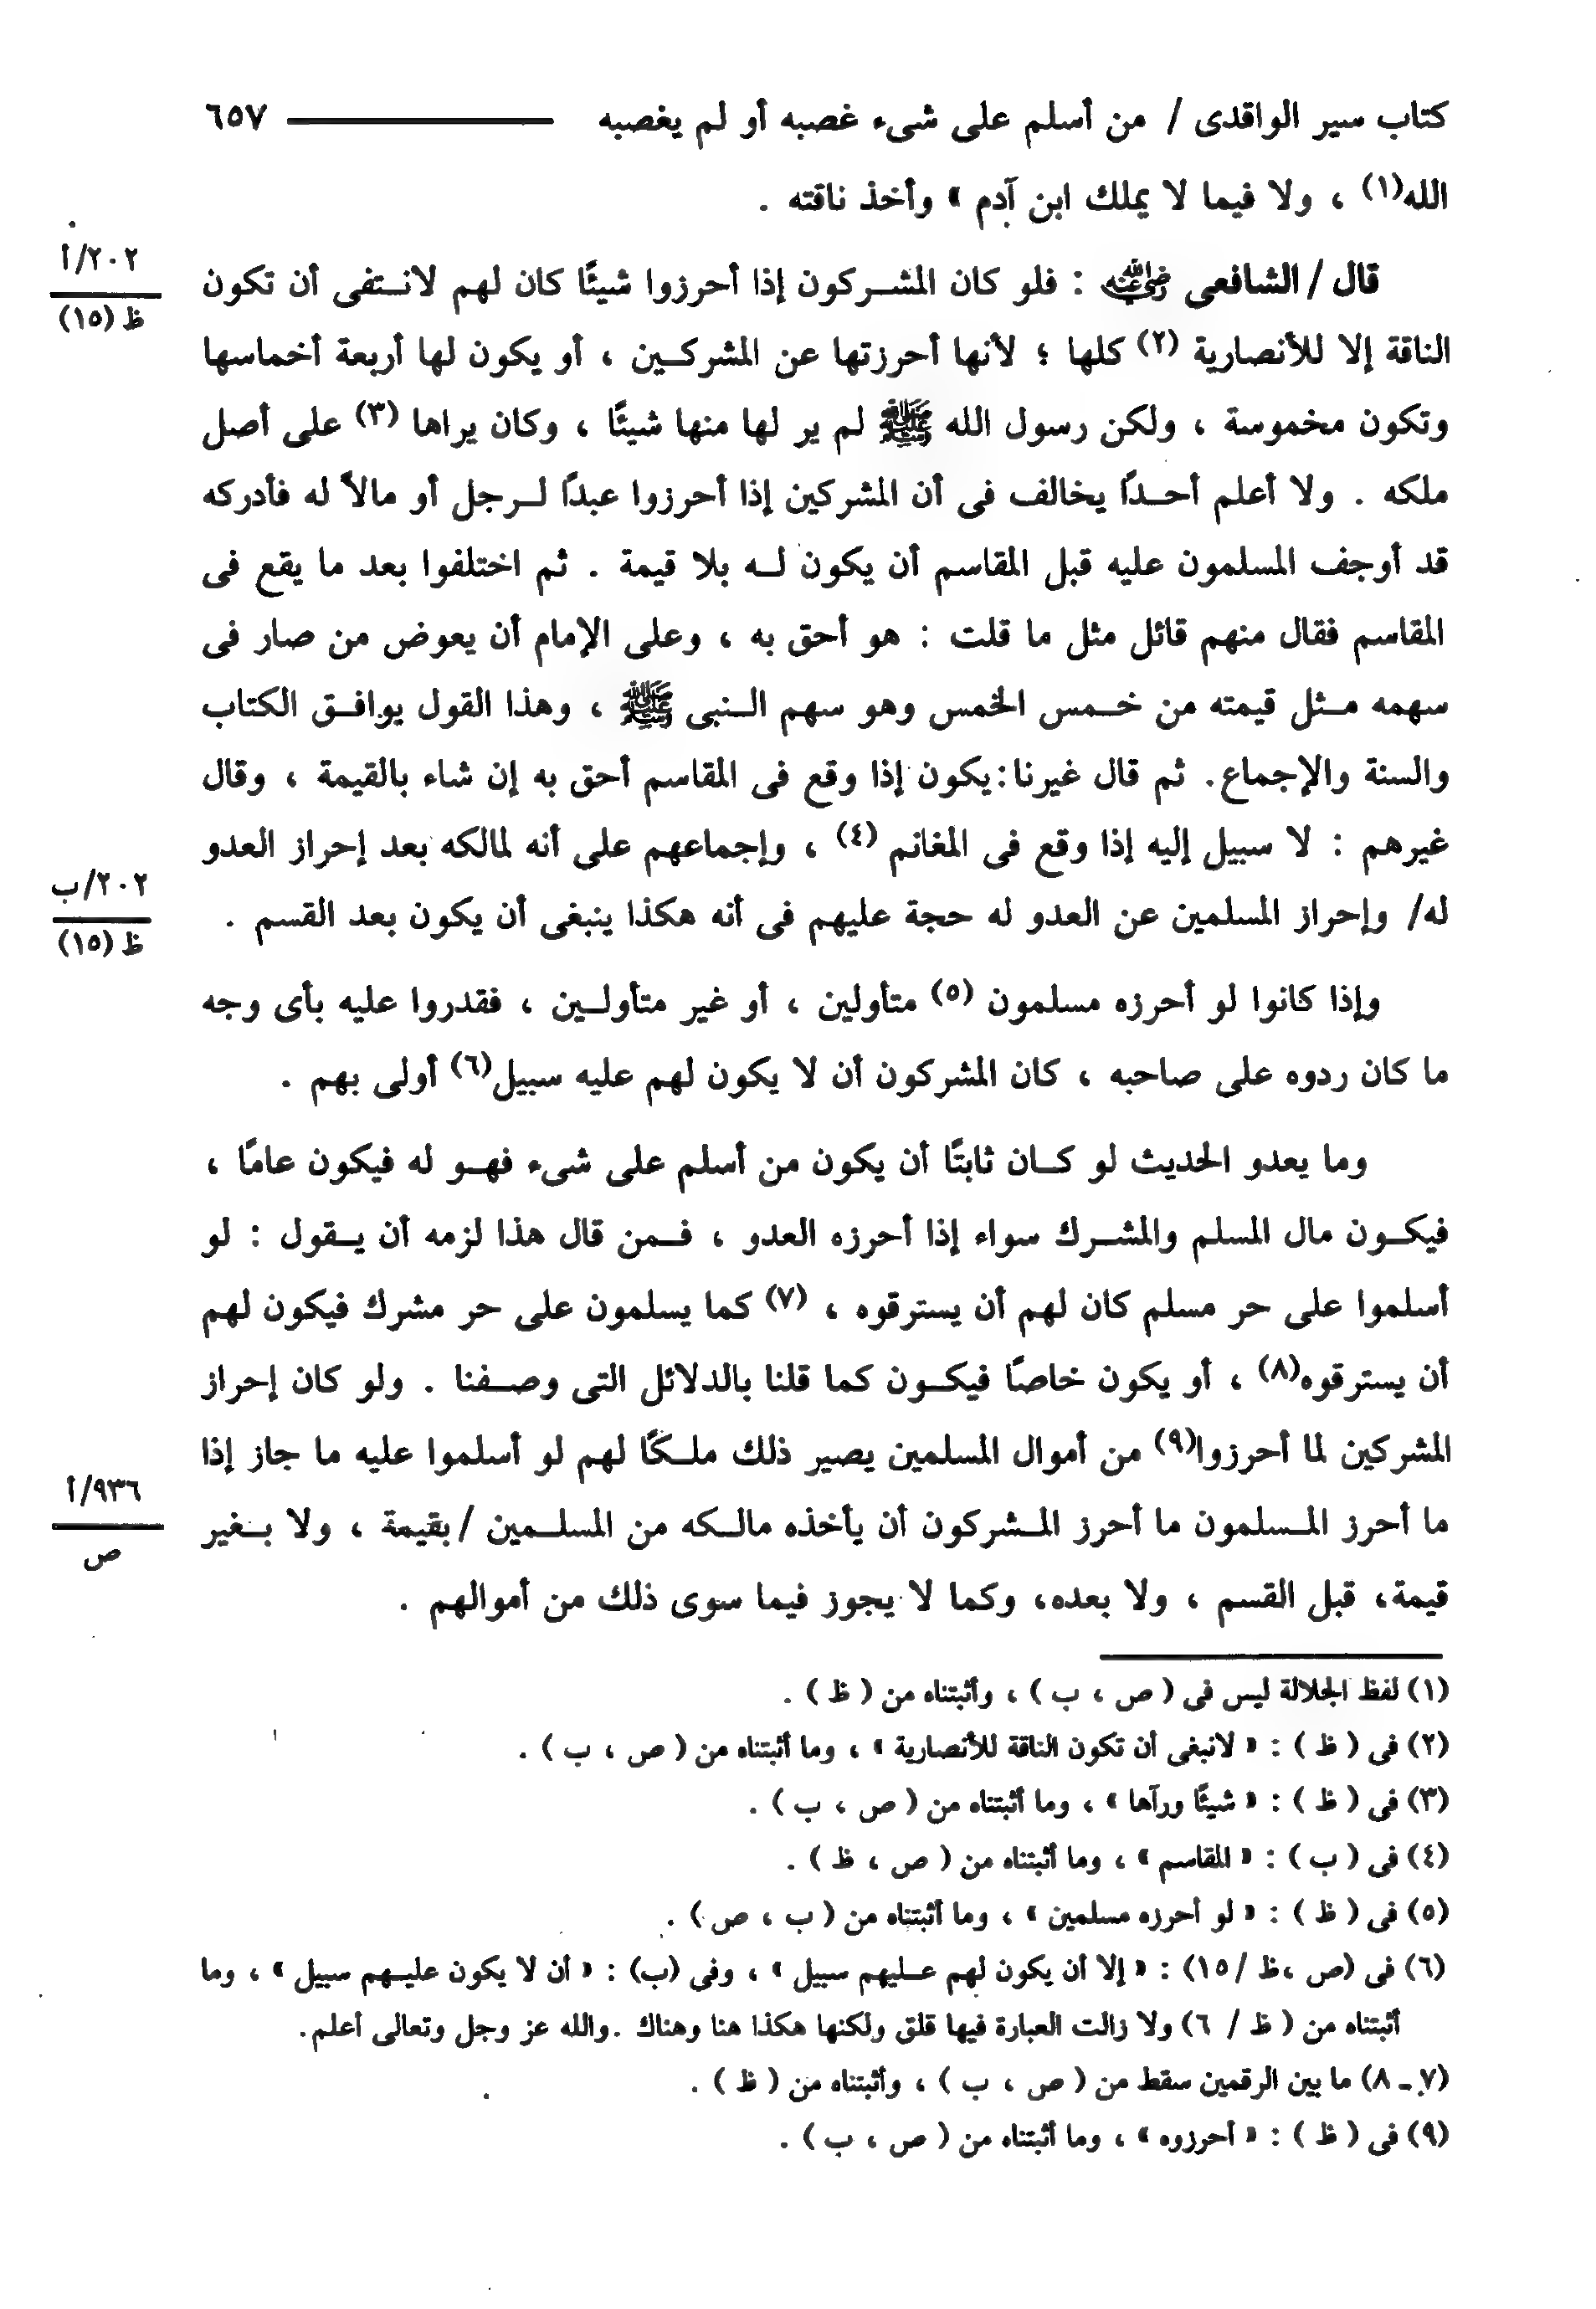 كتاب سير الواقدى / من أسلم على شىء غصبه أو لم يغصبه ٦٥٧
الله(١) ، ولا فيما لا يملك ابن آدم » وأخذ ناقته .
٢٠٢/أ
ظ (١٥)
قال / الشافعى رضي الله عنه : فلو كان المشركون إذا أحرزوا شيئًا كان لهم لانتفى أن تكون
الناقة إلا للأنصارية (٢) كلها ؛ لأنها أحرزتها عن المشركين ، أو يكون لها أربعة أخماسها
وتكون مخموسة ، ولكن رسول الله ﷺ لم ير لها منها شيئًا ، وكان يراها (٣) على أصل
ملكه . ولا أعلم أحدًا يخالف فى أن المشركين إذا أحرزوا عبدًا لرجل أو مالاً له فأدركه
قد أوجف المسلمون عليه قبل المقاسم أن يكون له بلا قيمة . ثم اختلفوا بعد ما يقع فى
المقاسم فقال منهم قائل مثل ما قلت : هو أحق به ، وعلى الإمام أن يعوض من صار فى
سهمه مثل قيمته من خمس الخمس وهو سهم النبى ﷺ ، وهذا القول يوافق الكتاب
والسنة والإجماع. ثم قال غيرنا: يكون إذا وقع فى المقاسم أحق به إن شاء بالقيمة ، وقال
غيرهم : لا سبيل إليه إذا وقع فى المغانم (٤) ، وإجماعهم على أنه لمالكه بعد إحراز العدو
٢٠٢/ب
ظ (١٥)
له/ وإحراز المسلمين عن العدو له حجة عليهم فى أنه هكذا ينبغى أن يكون بعد القسم .
وإذا كانوا لو أحرزه مسلمون (٥) متأولين ، أو غير متأولين ، فقدروا عليه بأى وجه
ما كان ردوه على صاحبه ، كان المشركون أن لا يكون لهم عليه سبيل(٦) أولى بهم .
وما يعدو الحديث لو كان ثابتًا أن يكون من أسلم على شىء فهو له فيكون عامًا ،
فيكون مال المسلم والمشرك سواء إذا أحرزه العدو ، فمن قال هذا لزمه أن يقول : لو
أسلموا على حر مسلم كان لهم أن يسترقوه ، (٧) كما يسلمون على حر مشرك فيكون لهم
أن يسترقوه(٨) ، أو يكون خاصًا فيكون كما قلنا بالدلائل التى وصفنا . ولو كان إحراز
المشركين لما أحرزوا(٩) من أموال المسلمين يصير ذلك ملكًا لهم لو أسلموا عليه ما جاز إذا
٩٣٦/أ
ص
ما أحرز المسلمون ما أحرز المشركون أن يأخذه مالكه من المسلمين / بقيمة ، ولا بغير
قيمة، قبل القسم ، ولا بعده، وكما لا يجوز فيما سوى ذلك من أموالهم .
(١) لفظ الجلالة ليس فى ( ص ، ب ) ، وأثبتناه من ( ظ ) .
(٢) فى ( ظ ) : « لانبغى أن تكون الناقة للأنصارية » ، وما أثبتناه من ( ص ، ب ) .
(٣) فى ( ظ ) : « شيئًا ورآها » ، وما أثبتناه من ( ص ، ب ) .
(٤) فى ( ب ) : « المقاسم » ، وما أثبتناه من ( ص ، ظ ) .
(٥) فى ( ظ ) : « لو أحرزه مسلمين » ، وما أثبتناه من ( ب ، ص ) .
(٦) فى (ص ،ظ / ١٥) : « إلا أن يكون لهم عليهم سبيل » ، وفى (ب) : « أن لا يكون عليهم سبيل » ، وما
أثبتناه من ( ظ / ٦) ولا زالت العبارة فيها قلق ولكنها هكذا هنا وهناك .والله عز وجل وتعالى أعلم.
(٧ ـ ٨) ما بين الرقمين سقط من ( ص ، ب ) ، وأثبتناه من ( ظ ) .
(٩) فى ( ظ ) : « أحرزوه » ، وما أثبتناه من ( ص ، ب ) .